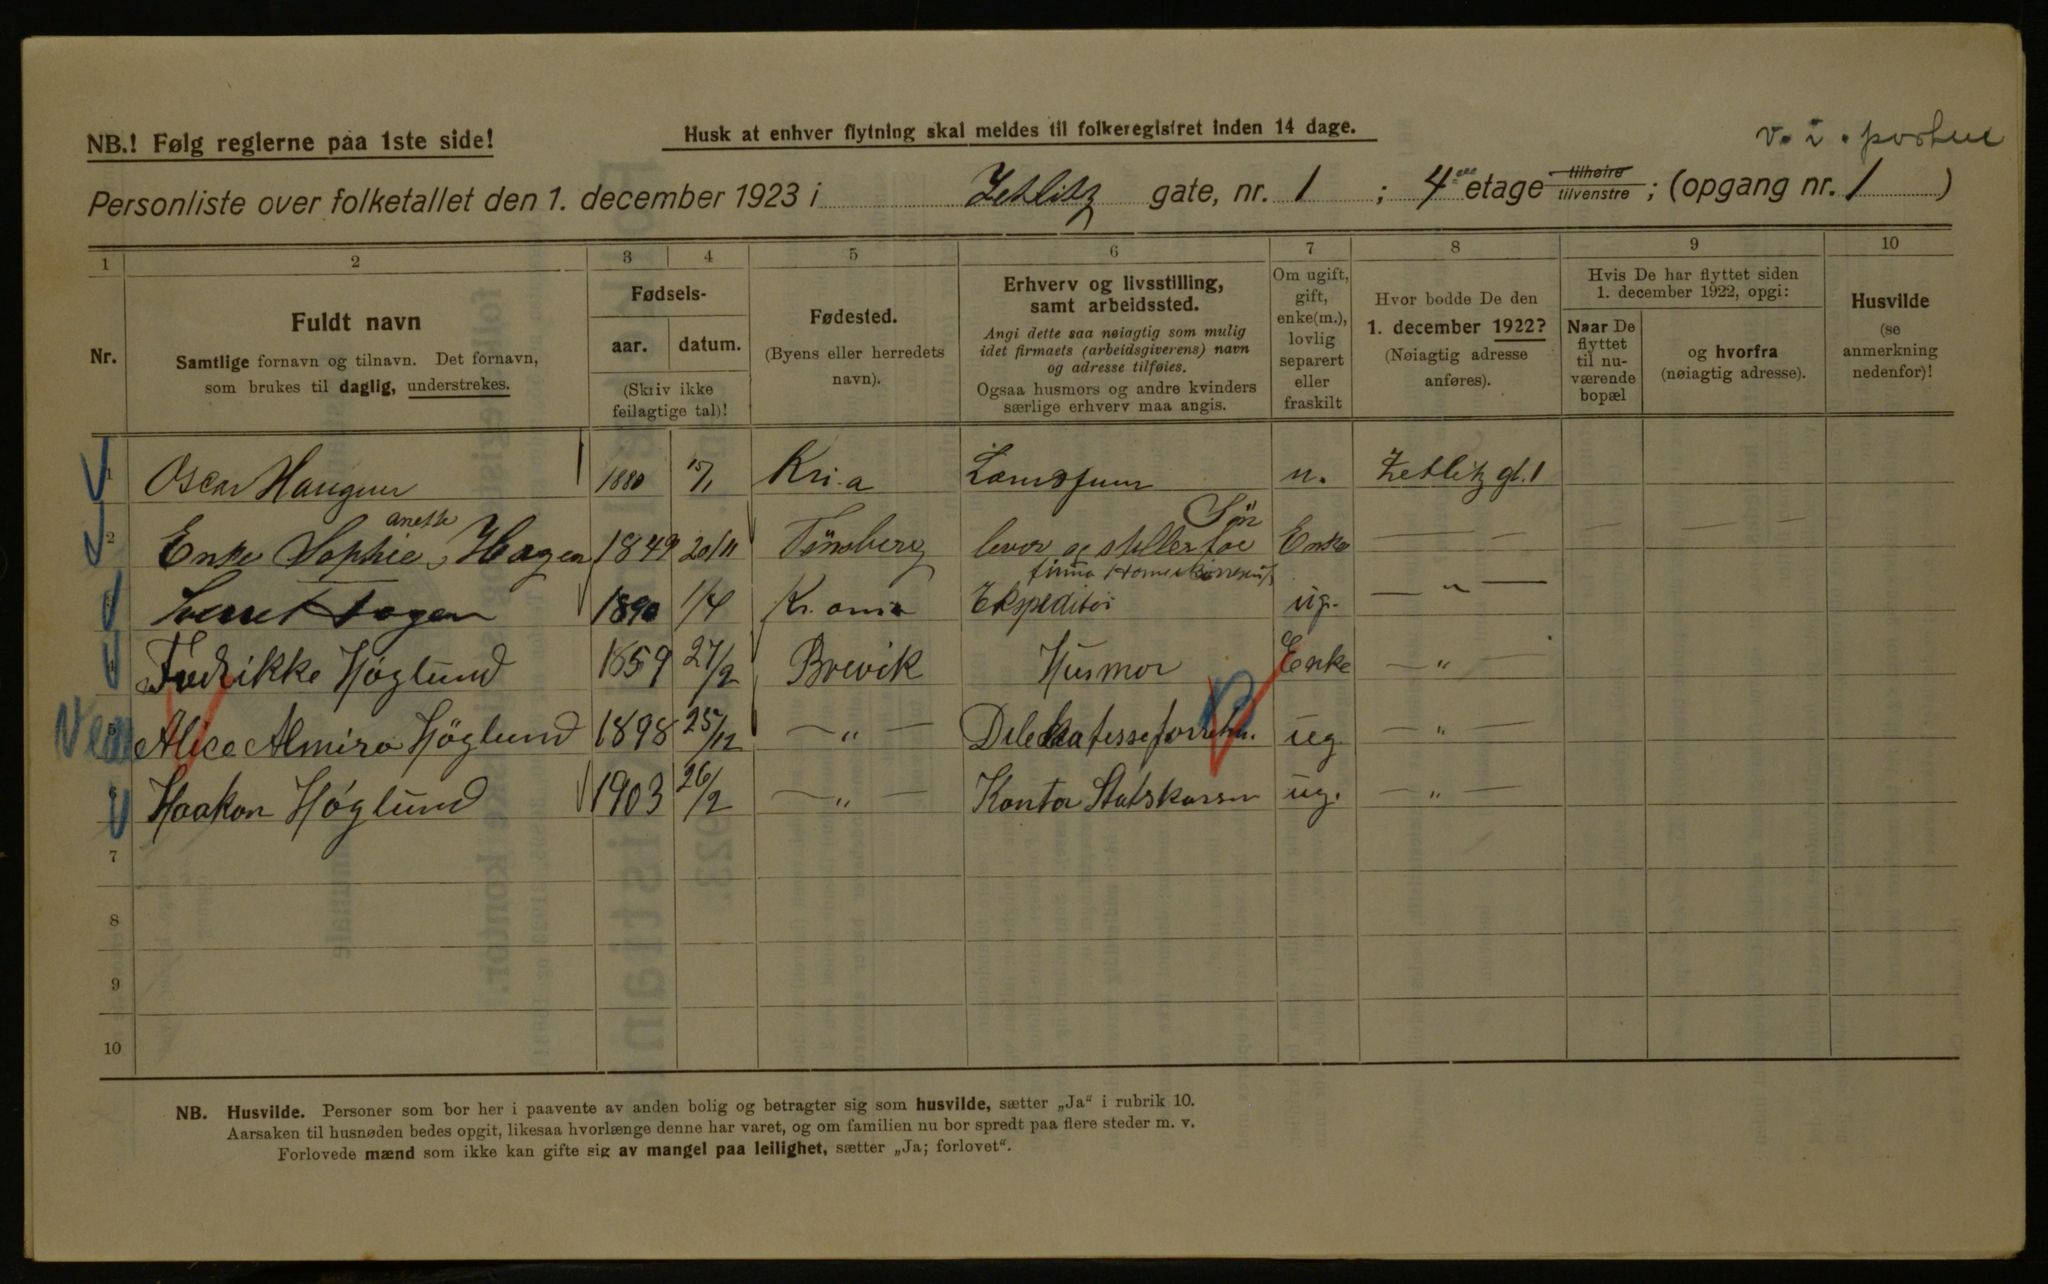 v. i. portne
NB.! Følg reglerne paa 1ste side!
Husk at enhver flytning skal meldes til folkeregistret inden 14 dage.
Personliste over folketallet den 1. december 1923 i Zetlitz gate, nr. 1 ; 4 etage tilhøire tilvenstre ; (opgang nr. 1 )
1 2 3 4 5 6 7 8 9 10
Nr.
Fuldt navn
Samtlige fornavn og tilnavn. Det fornavn,
som brukes til daglig, understrekes.
Fødsels-
aar. datum.
(Skriv ikke
feilagtige tal)!
Fødested.
(Byens eller herredets
navn).
Erhverv og livsstilling,
samt arbeidssted.
Angi dette saa nøiagtig som mulig
idet firmaets (arbeidsgiverens) navn
og adresse tilføies.
Ogsaa husmors og andre kvinders
særlige erhverv maa angis.
Om ugift,
gift,
enke(m.),
lovlig
separert
eller
fraskilt
Hvor bodde De den
1. december 1922?
(Nøiagtig adresse
anføres).
Hvis De har flyttet siden
1. december 1922, opgi:
Naar De
flyttet
til nu-
værende
bopæl
og hvorfra
(nøiagtig adresse).
Husvilde
(se
anmerkning
nedenfor)!
1 Oscar Haugen 1880 15/1 Kri.a u. Zetlitz gt. 1
2 Enke Sophie Anette Hagen 1849 20/11 Tönsberg lever og steller for Sön Enke — " —
Hagen 1890 1/4 Kr.ania Ekspeditør firma ug. — " —
4 Fredrikke Høglund 1859 27/2 Brevik Husmor Enke — " —
5 Alice Almira Höglund 1898 25/12 — " — Delekatesseforretn. ug. — " —
6 Haakon Høglund 1903 26/2 — " — Kontor Statskassen ug. — " —
7
8
9
10
NB. Husvilde. Personer som bor her i paavente av anden bolig og betragter sig som husvilde, sætter „Ja“ i rubrik 10.
Aarsaken til husnøden bedes opgit, likesaa hvorlænge denne har varet, og om familien nu bor spredt paa flere steder m. v.
Forlovede mænd som ikke kan gifte sig av mangel paa leilighet, sætter „Ja; forlovet“.